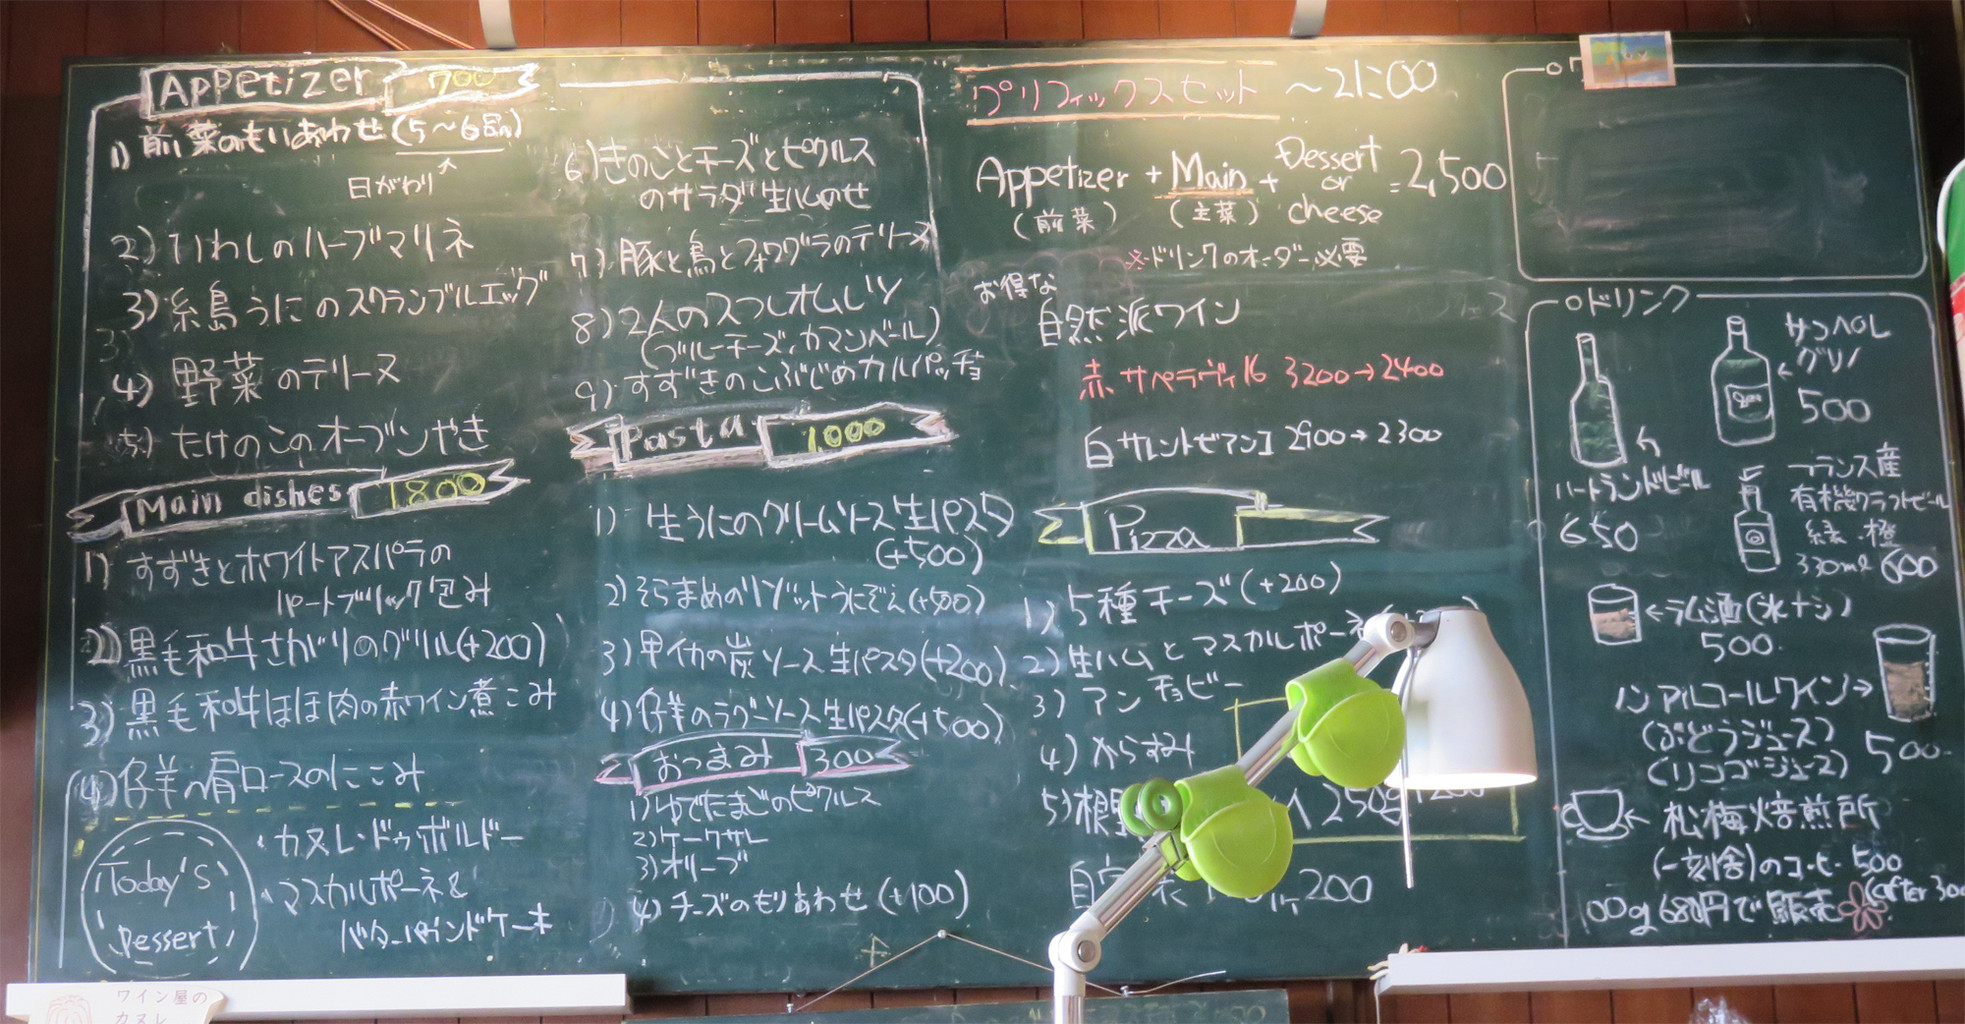 Appetizer 700
1) 前菜のもりあわせ(5~6品)
日がわり
2) いわしのハーブマリネ
3) 糸島うにのスクランブルエッグ
4) 野菜のテリーヌ
5) たけのこのオーブンやき
6) きのことチーズとピクルス
のサラダ生ハムのせ
7) 豚と鳥とフォワグラのテリーヌ
8) 2人のスつしオムレツ
(ブルーチーズ、カマンベール)
9) すずきのこぶじめカルパッチョ
Main dishes 1800
1) すずきとホワイトアスパラの
パートブリック包み
2) 黒毛和牛さがりのグリル(+200)
3) 黒毛和牛ほほ肉の赤ワイン煮こみ
4) 仔羊の肩ロースのにこみ
Today's
Dessert
・カヌレ・ドゥ・ボルドー
・マスカルポーネ&
バターパウンドケーキ
Pasta 1000
1) 生うにのクリームソース生パスタ
(+500)
2) そらまめのリゾットうにぞえ(+500)
3) 甲イカの炭ソース生パスタ(+200)
4) 仔羊のラグーソース生パスタ(+500)
おつまみ 300
1) ゆでたまごのピクルス
2) ケークサレ
3) オリーブ
4) チーズのもりあわせ(+100)
プリフィックスセット ~21:00
Appetizer + Main + Dessert or cheese = 2,500
(前菜) (主菜)
※ドリンクのオーダー必要
お得な
自然派ワイン
赤 サペラヴィ16 3200→2400
白 サレントビアンコ 2900→2300
Pizza
1) 5種チーズ(+200)
2) 生ハムとマスカルポーネ
3) アンチョビー
4) からすみ
5) 根
250g
自家 200
○ドリンク
ハートランドビール
650
サンペレ
グリノ
500
フランス産
有機クラフトビール
緑・橙
330ml 600
←ラム酒(氷ナシ)
500
ノンアルコールワイン→
(ぶどうジュース)
(リンゴジュース) 500
← 松梅焙煎所
(一刻舎)のコーヒー 500
100g 680円で販売 (after 300
ワイン屋の
カヌレ